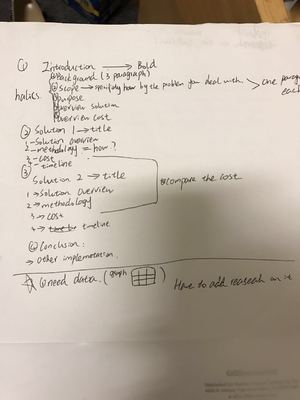 ① Introduction → Bold
①Background (3 paragraph)
italics ②scope → specifying how by the problem you deal with. > one paragraph each
③purpose
④overview solution
⑤overview cost
② Solution 1 → title
1 - Solution overview
2 - methodology = how?
3 - cost
4 - timeline
③ Solution 2 → title
1 → Solution overview
2 → methodology
3 → cost
4 → timeline
※compare the cost
④ Conclusion:
→ other implementation.
☆ ①need data. (graph) Have to add research on it